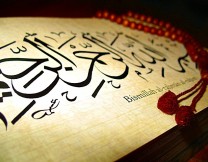 بسم الله الرحمن الرحيم
Bismillah